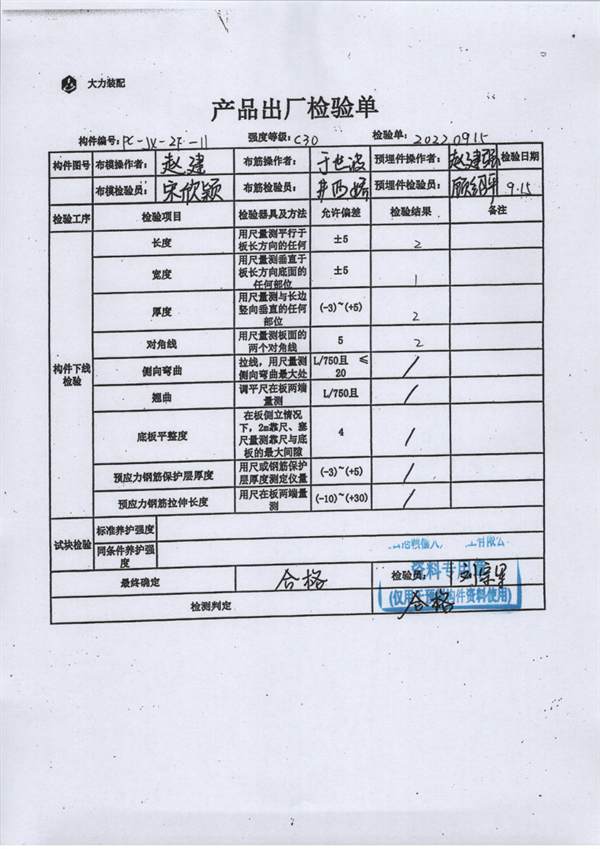 大力装配
产品出厂检验单
构件编号: PC-JX-2F-11 强度等级: C30 检验单: 20220915
构件图号 布模操作者: 赵建 布筋操作者: 预埋件操作者: 赵建强 检验日期
布模检验员: 宋欣颖 布筋检验员: 预埋件检验员: 9.15
检验工序 检验项目 检验器具及方法 允许偏差 检验结果 备注
构件下线检验
长度 用尺量测平行于板长方向的任何 ±5 2
宽度 用尺量测垂直于板长方向底面的任何部位 ±5 1
厚度 用尺量测与长边竖向垂直的任何部位 (-3)~(+5) 2
对角线 用尺量测板面的两个对角线 5 2
侧向弯曲 拉线，用尺量测侧向弯曲最大处 L/750且 ≤20 /
翘曲 调平尺在板两端量测 L/750且 /
底板平整度 在板侧立情况下，2m靠尺、塞尺量测靠尺与底板的最大间隙 4 /
预应力钢筋保护层厚度 用尺或钢筋保护层厚度测定仪量 (-3)~(+5) /
预应力钢筋拉伸长度 用尺在板两端量测 (-10)~(+30) /
试块检验 标准养护强度
同条件养护强度
最终确定 合格 检验员:
检测判定 合格
资料专用章
(仅用于预制构件资料使用)